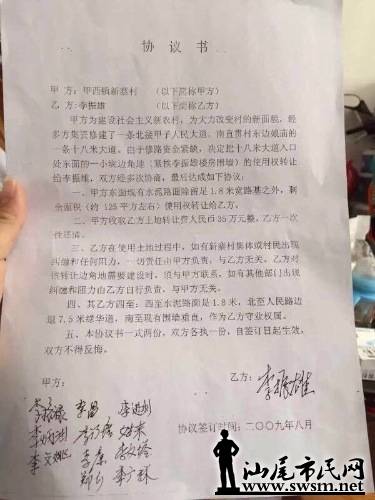 协 议 书
甲 方：甲西镇新寨村 （以下简称甲方）
乙 方：李振雄 （以下简称乙方）
甲方为建设社会主义新农村，为大力改变村的新面貌，经
多方集资修建了一条北接甲子人民大道、南直贯村东边娘庙的
一条十八米大道。由于修路资金紧缺，决定把十八米大道入口
处东面的一小块边角地（紧挨李振雄楼房围墙）的使用权转让
给李振雄，双方经多次协商，最后达成如下协议：
一、甲方东面线有水泥路面除留足1.8米宽路基之外，剩
余面积（约 125 平方左右）使用权转让给乙方。
二、甲方收取乙方土地转让费人民币35万元整，乙方一次
性还清。
三、乙方在使用土地过程中，如有新寨村集体或村民出现
纠缠和任何阻力，一切责任由甲方负责，与乙方无关。乙方对
该转让边角地需要建设时，须与甲方联系，如有其他部门出现
纠缠和阻力由乙方自行负责，与甲方无关。
四、其乙方四至：西至水泥路面是1.8米，北至人民路边
退7.5米绿华道，南至现有围墙垂直，作为乙方守业权属。
五、本协议书一式两份，双方各执一份，自签订日起生效，
双方不得反悔。
甲方：
乙方：李振雄
李昌
协议签订时间：二〇〇九年八月
汕尾市民网
www.swsm.net